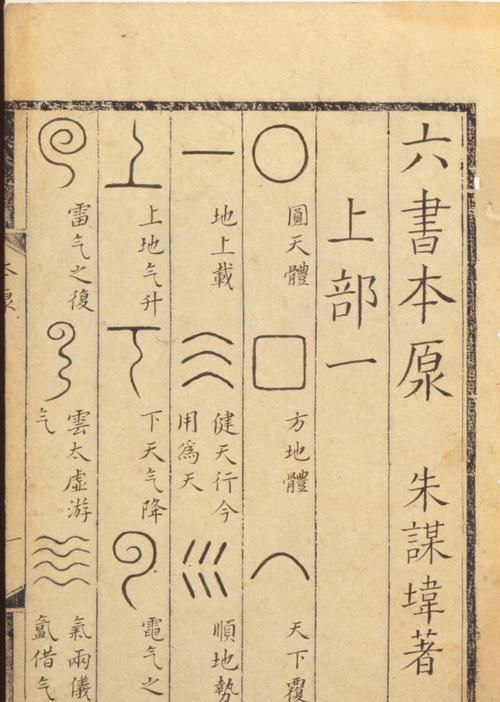 六書本原 朱謀㙔著
上部一
圓天體 方地體 天下覆
地上載 健天行今用爲天 順地勢
上地气升 下天气降 電气之
雷气之復 雲太虛游气 氣兩儀氳借气